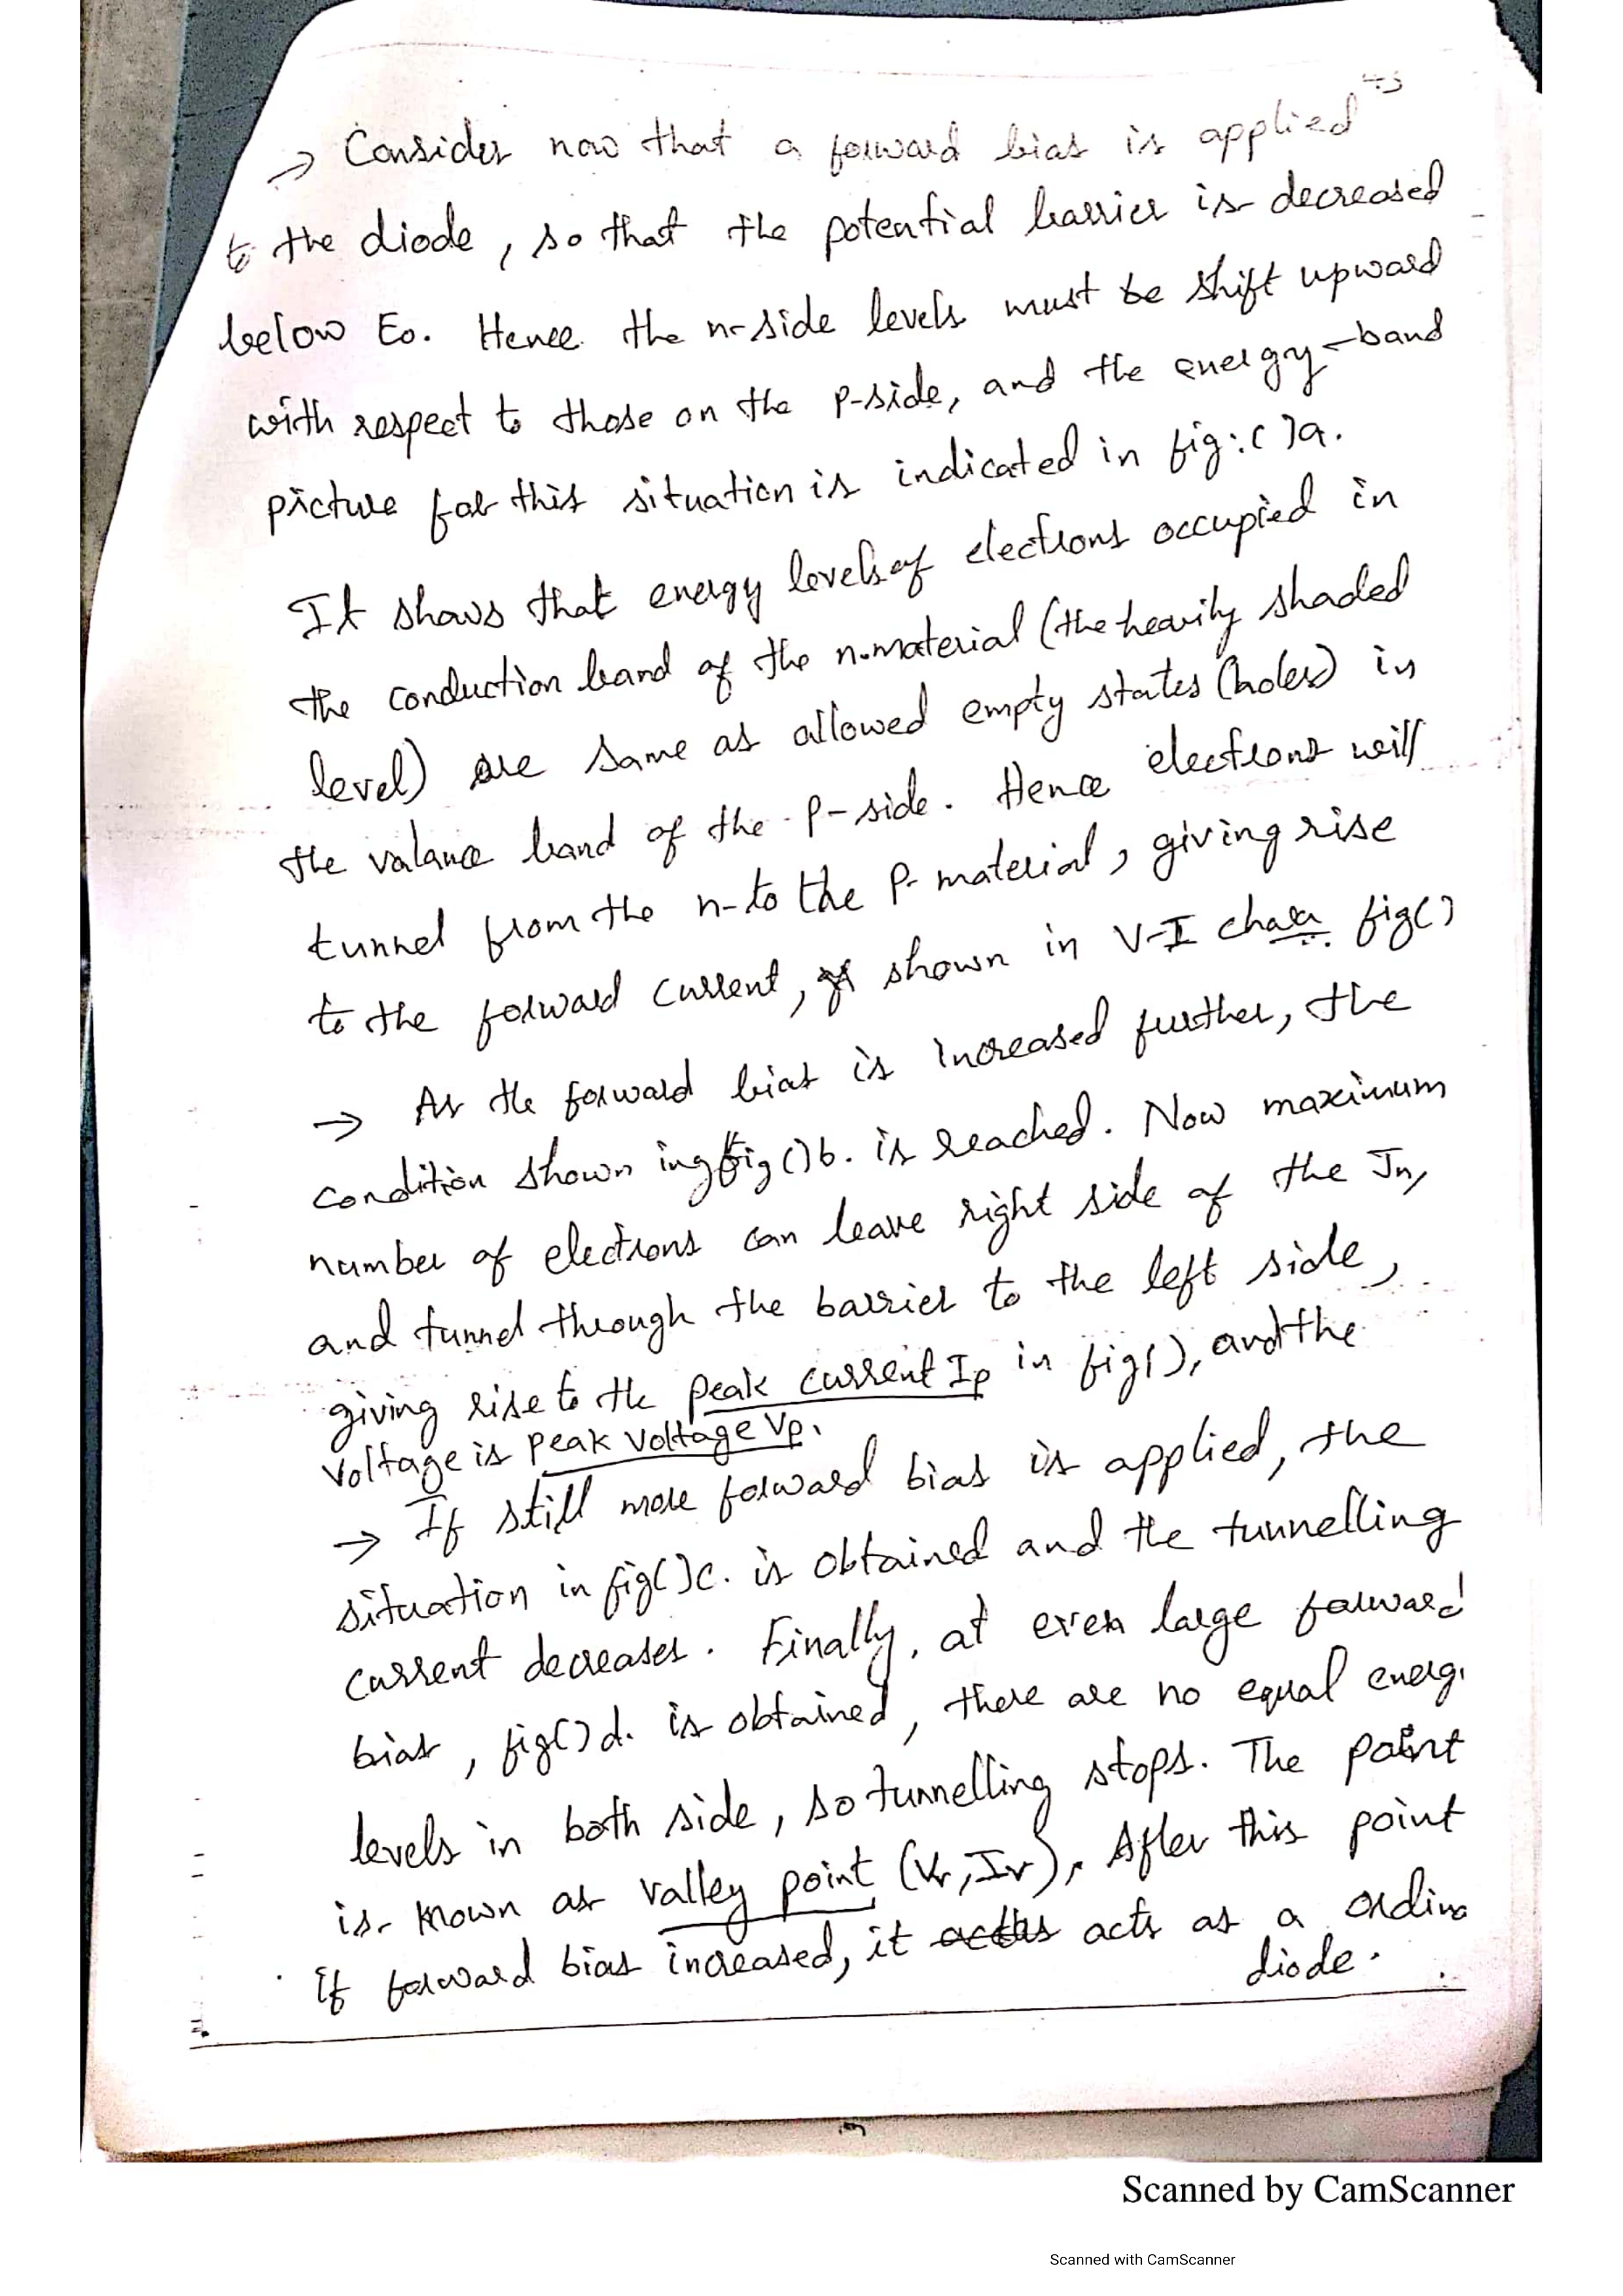 → Consider now that a forward bias is applied
to the diode, so that the potential barrier is decreased
below Eo. Hence the n-side levels must be shift upward
with respect to those on the p-side, and the energy-band
picture for this situation is indicated in fig:( )a.
It shows that energy levels of electrons occupied in
the conduction band of the n-material (the heavily shaded
level) are same as allowed empty states (holes) in
the valance band of the p-side. Hence electrons will
tunnel from the n-to the p-material, giving rise
to the forward current, as shown in V-I char fig( )
→ As the forward bias is increased further, the
condition shown ing fig ( )b. is reached. Now maximum
number of electrons can leave right side of the Jn,
and tunnel through the barrier to the left side,
giving rise to the peak current Ip in fig( ), and the
voltage is peak voltage Vp.
→ If still more forward bias is applied, the
situation in fig( )c. is obtained and the tunnelling
current decreases. Finally, at even large forward
bias, fig( )d. is obtained, there are no equal energ
levels in both side, so tunnelling stops. The point
is known as valley point (Vv, Iv). After this point
if forward bias increased, it acts as a ordina
diode.
Scanned by CamScanner
Scanned with CamScanner